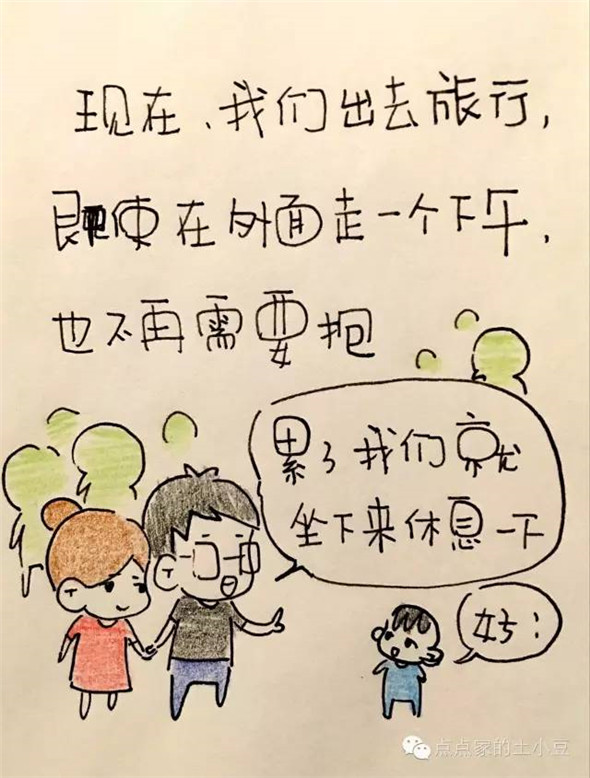 现在、我们出去旅行，
即使在外面走一个下午，
也不再需要抱
累了我们就
坐下来休息一下
好！
点点家的土小豆